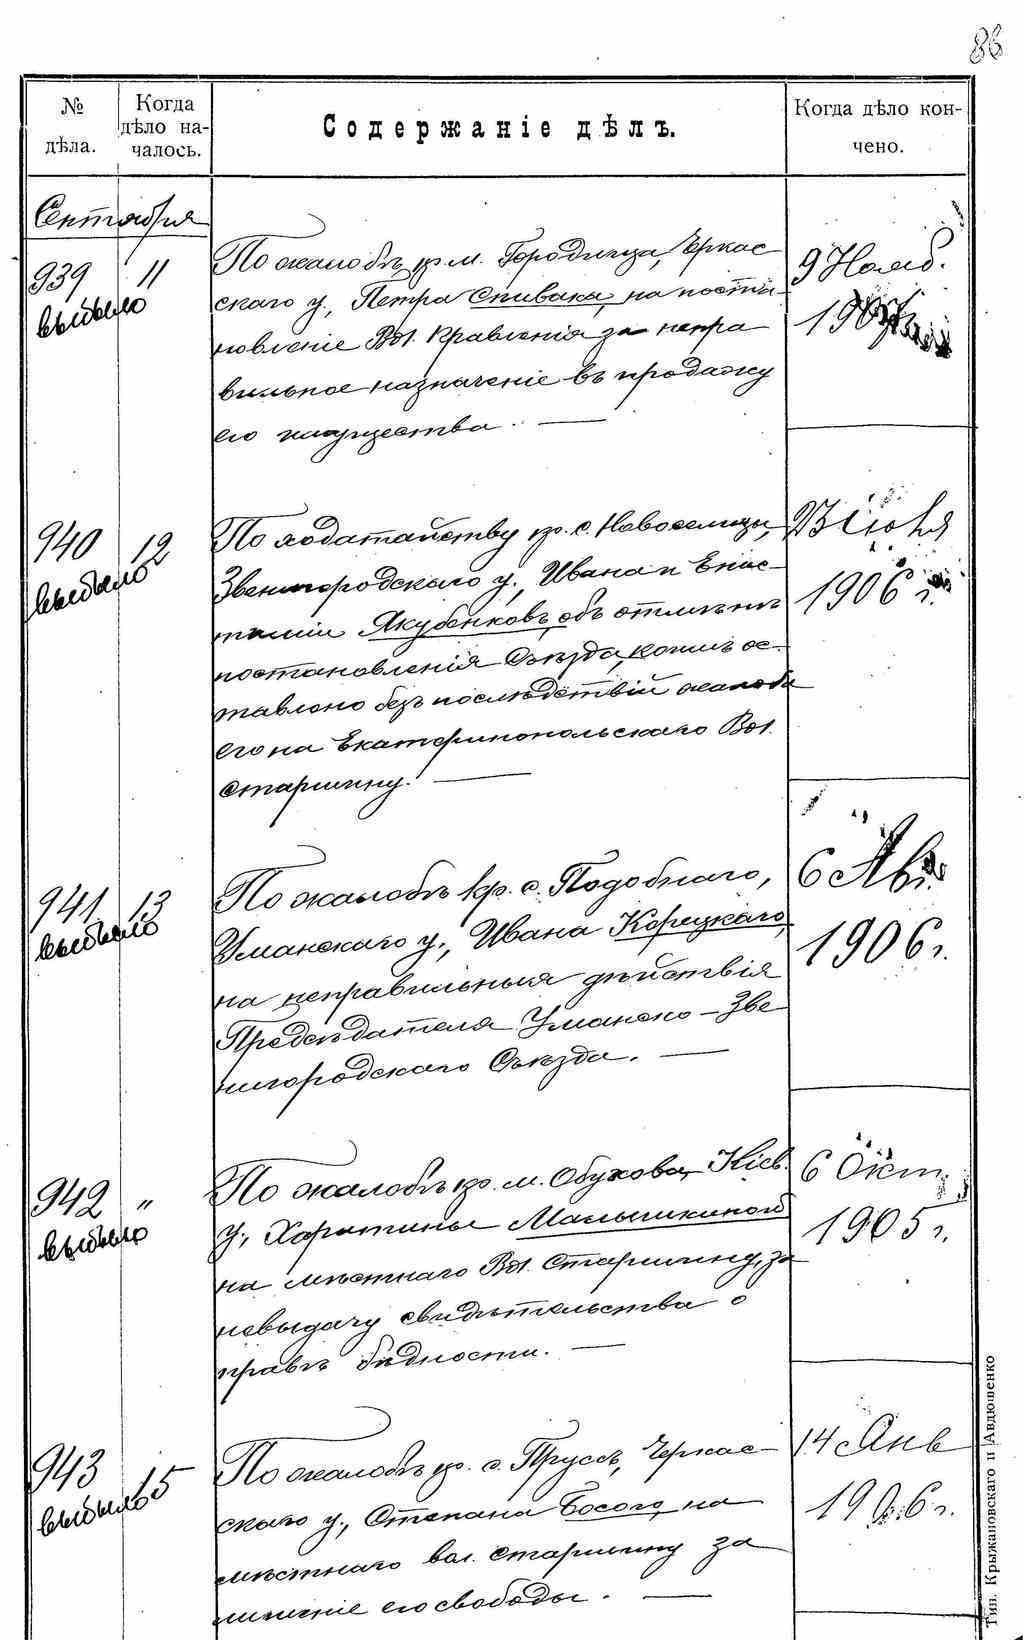 86
№ дѣла.
Когда дѣло началось.
Содержаніе дѣлъ.
Когда дѣло кончено.
Сентября
939 11
выбыло
По жалобѣ кр. м. Городища, Черкас
скаго у., Петра Спивака, на поста-
новленіе Вол. Правленія за непра
вильное назначеніе въ продажу
его имущества. —
9 Нояб.
190
940 12
выбыло
По ходатайству кр. с. Новоселицы,
Звенигородскаго у., Ивана и Епис-
тиміи Якубенковъ, объ отмѣнѣ
постановленія Съѣзда, коимъ ос-
тавлено безъ послѣдствій жалоба
его на Екатеринопольскаго Вол.
старшину. —
23 іюня
1906 г.
941 13
выбыло
По жалобѣ кр. с. Подобнаго,
Уманскаго у., Ивана Корецкаго,
на неправильныя дѣйствія
Предсѣдателя Уманско-Зве
нигородскаго Съѣзда. —
6 Авг.
1906 г.
942 "
выбыло
По жалобѣ кр. м. Обухова, Кіев.
у., Харитины Малышкиной
на мѣстнаго Вол. Старшину, за
невыдачу свидѣтельства о
правѣ бѣдности. —
6 Окт.
1905 г.
943 15
выбыло
По жалобѣ кр. с. Пруссъ, Черкас-
скаго у., Степана Босого, на
мѣстнаго вол. старшину за
лишеніе его свободы. —
14 Янв
1906 г.
Тип. Крыжановскаго и Авдюшенко